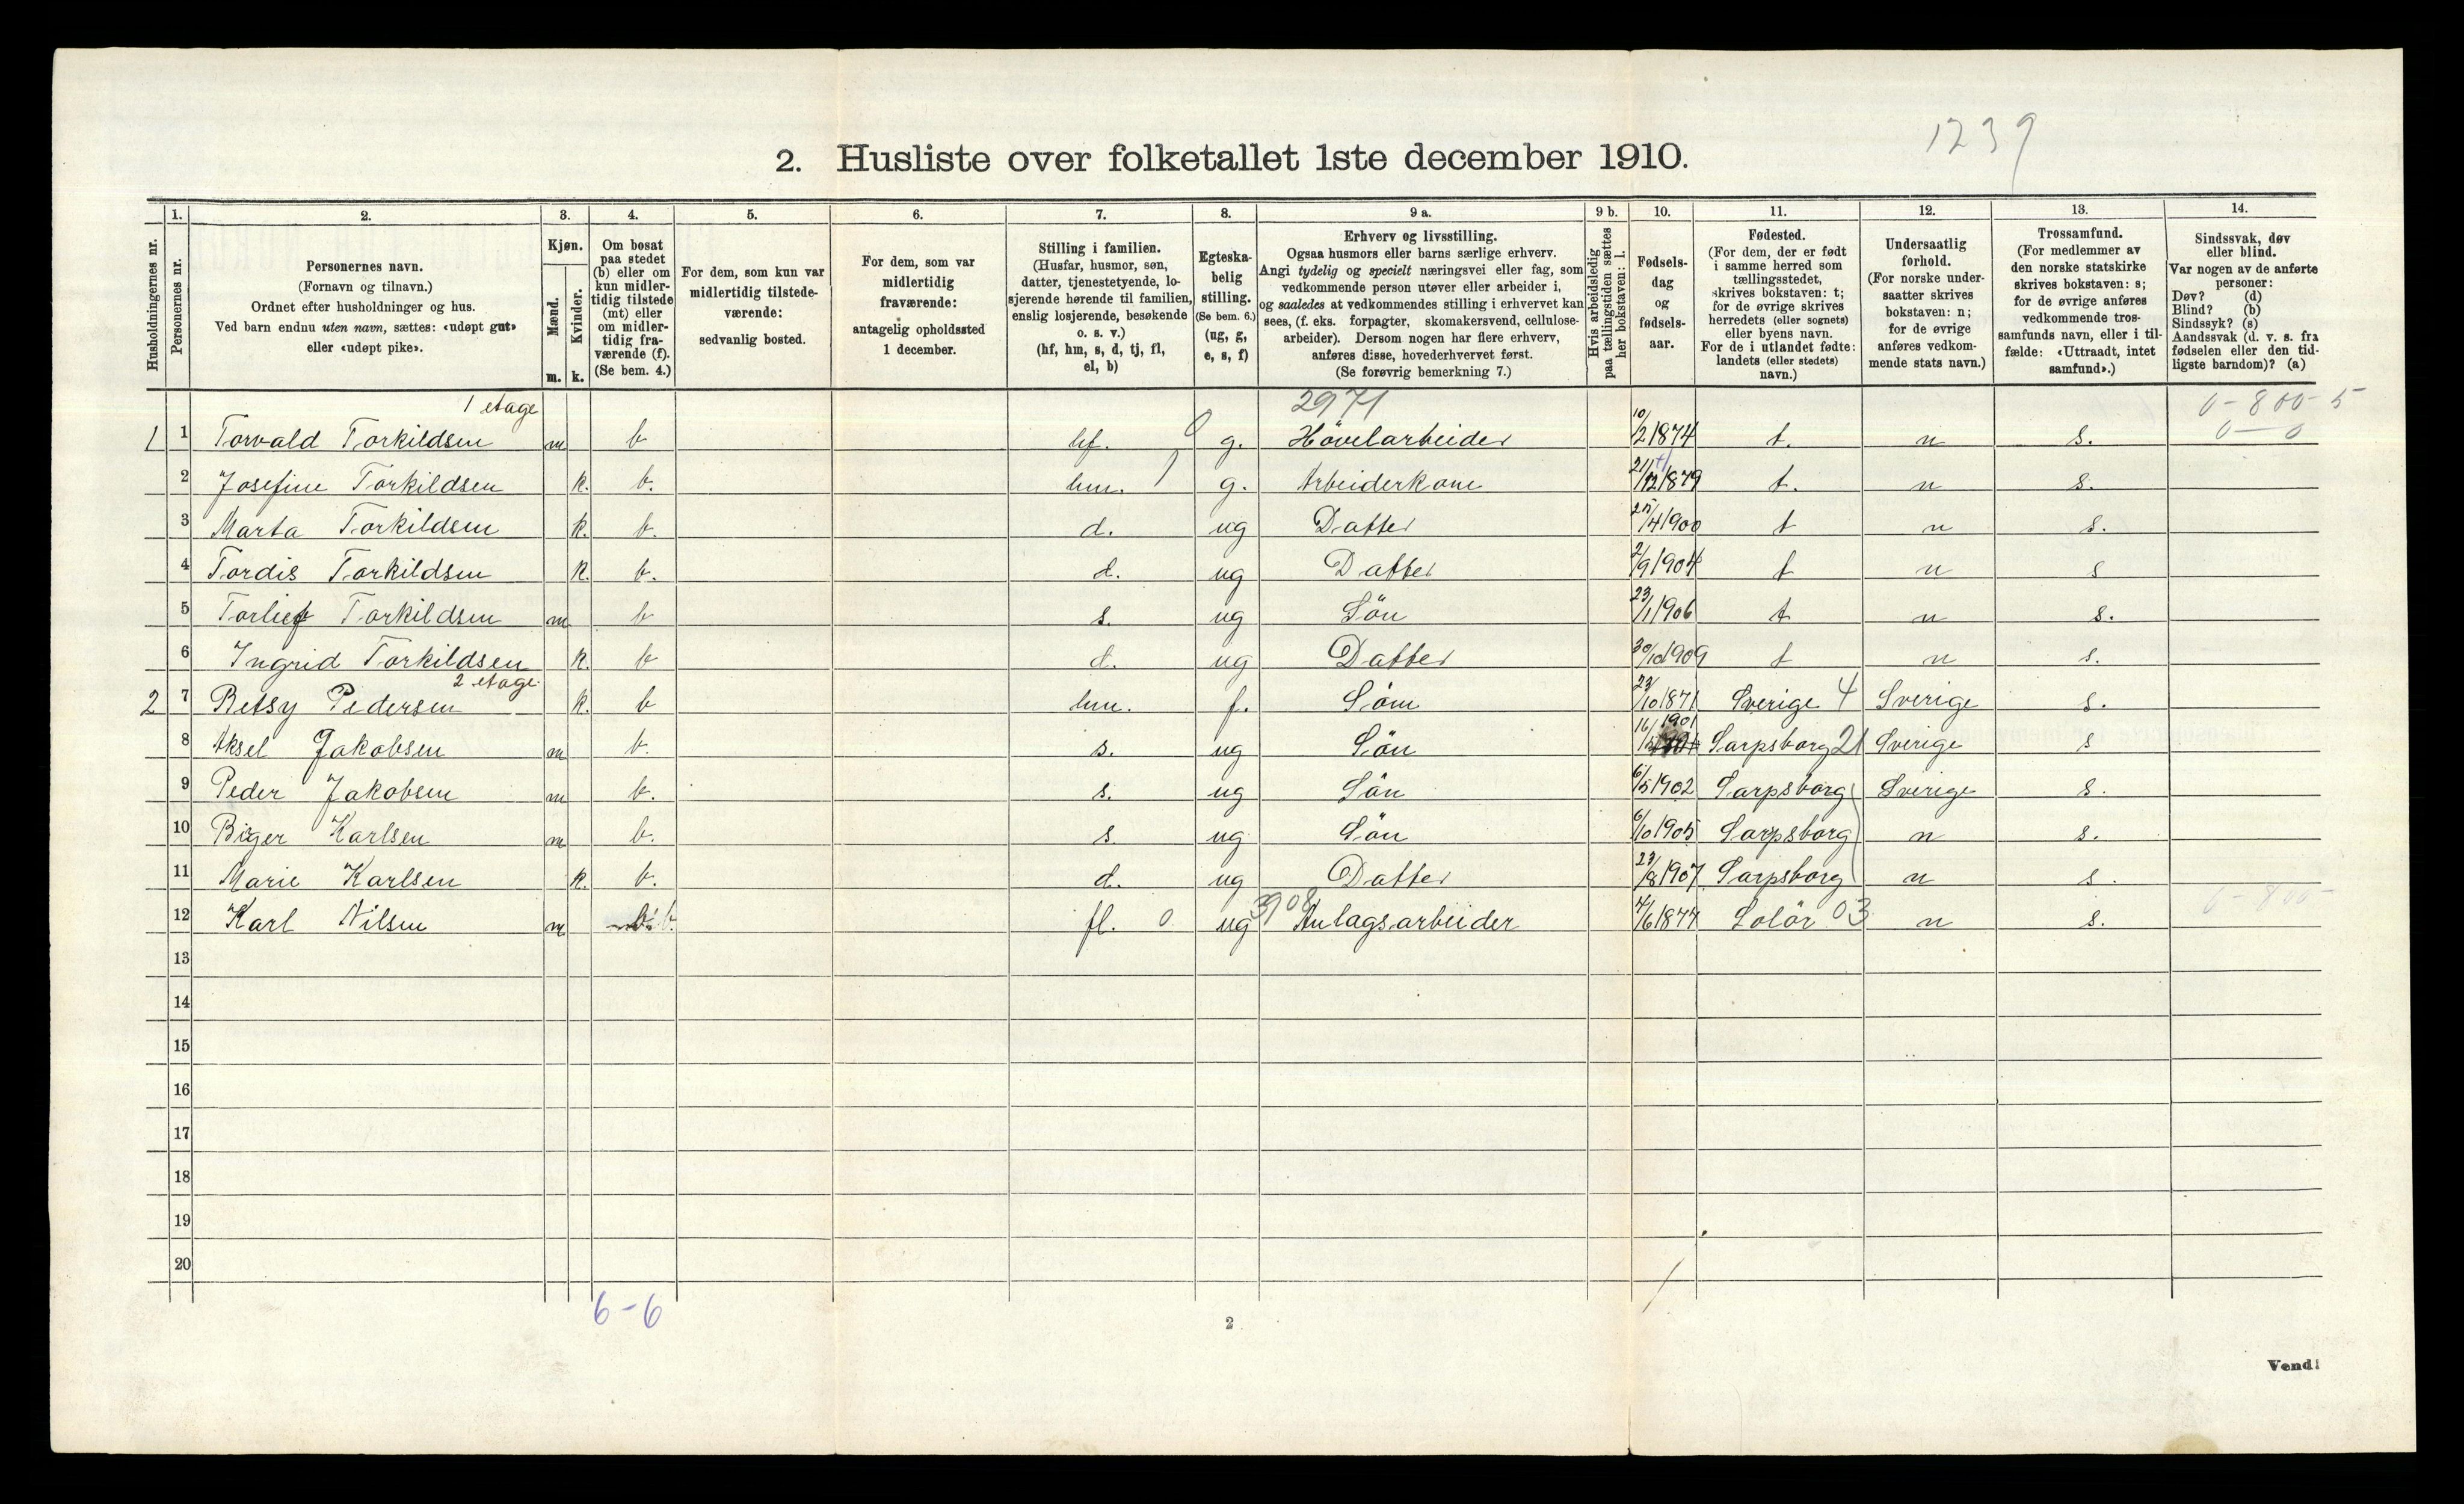 1239
2. Husliste over folketallet 1ste december 1910.
Husholdningernes nr.
1. Personernes nr.
2. Personernes navn. (Fornavn og tilnavn.) Ordnet efter husholdninger og hus. Ved barn endnu uten navn, sættes: «udøpt gut» eller «udøpt pike».
3. Kjøn. Mænd. m. Kvinder. k.
4. Om bosat paa stedet (b) eller om kun midler-tidig tilstede (mt) eller om midler-tidig fra-værende (f). (Se bem. 4.)
5. For dem, som kun var midlertidig tilstede-værende: sedvanlig bosted.
6. For dem, som var midlertidig fraværende: antagelig opholdssted 1 december.
7. Stilling i familien. (Husfar, husmor, søn, datter, tjenestetyende, lo-sjerende hørende til familien, enslig losjerende, besøkende o. s. v.) (hf, hm, s, d, tj, fl, el, b)
8. Egteska-belig stilling. (Se bem. 6.) (ug, g, e, s, f)
9 a. Erhverv og livsstilling. Ogsaa husmors eller barns særlige erhverv. Angi tydelig og specielt næringsvei eller fag, som vedkommende person utøver eller arbeider i, og saaledes at vedkommendes stilling i erhvervet kan sees, (f. eks. forpagter, skomakersvend, cellulose-arbeider). Dersom nogen har flere erhverv, anføres disse, hovederhvervet først. (Se forøvrig bemerkning 7.)
9 b. Hvis arbeidsledig paa tællingstiden sættes her bokstaven: l.
10. Fødsels-dag og fødsels-aar.
11. Fødested. (For dem, der er født i samme herred som tællingsstedet, skrives bokstaven: t; for de øvrige skrives herredets (eller sognets) eller byens navn. For de i utlandet fødte: landets (eller stedets) navn.)
12. Undersaatlig forhold. (For norske under-saatter skrives bokstaven: n; for de øvrige anføres vedkom-mende stats navn.)
13. Trossamfund. (For medlemmer av den norske statskirke skrives bokstaven: s; for de øvrige anføres vedkommende tros-samfunds navn, eller i til-fælde: «Uttraadt, intet samfund».)
14. Sindssvak, døv eller blind. Var nogen av de anførte personer: Døv? (d) Blind? (b) Sindssyk? (s) Aandssvak (d. v. s. fra fødselen eller den tid-ligste barndom)? (a)
1 etage 2971 0-800-5
1 1 Torvald Torkildsen m b hf. 0 g. Hövelarbeider 10/2 1874 t. n s. 0-0
2 Josefine Torkildsen k. b. hm. 1 g. Arbeiderkone 21/12 1879 t. n s.
3 Marta Torkildsen k. b. d. ug Datter 25/4 1900 t n s.
4 Tordis Torkildsen k. b. d. ug Datter 2/9 1904 t n s
5 Torlief Torkildsen m b s. ug Sön 23/1 1906 t n s.
6 Ingrid Torkildsen k. b d. ug Datter 30/10 1909 t n s.
2 etage
2 7 Betsy Pedersen k. b hm. f. Söm 23/10 1871 Sverige 4 Sverige s.
8 Aksel Jakobsen m b. s. ug Sön 16/ 1901 Sarpsborg 21 Sverige s
9 Peder Jakobsen m b. s. ug Sön 6/5 1902 Sarpsborg Sverige s.
10 Birger Karlsen m b. s ug Sön 6/10 1905 Sarpsborg n s.
11 Marie Karlsen k. b. d. ug Datter 23/8 1907 Sarpsborg n s.
12 Karl Nilsen m b. fl. 0 ug 3908 Anlagsarbeider 4/6 1877 Solör 03 n s. 0-800-
13
14
15
16
17
18
19
20
6-6
2
Vend!